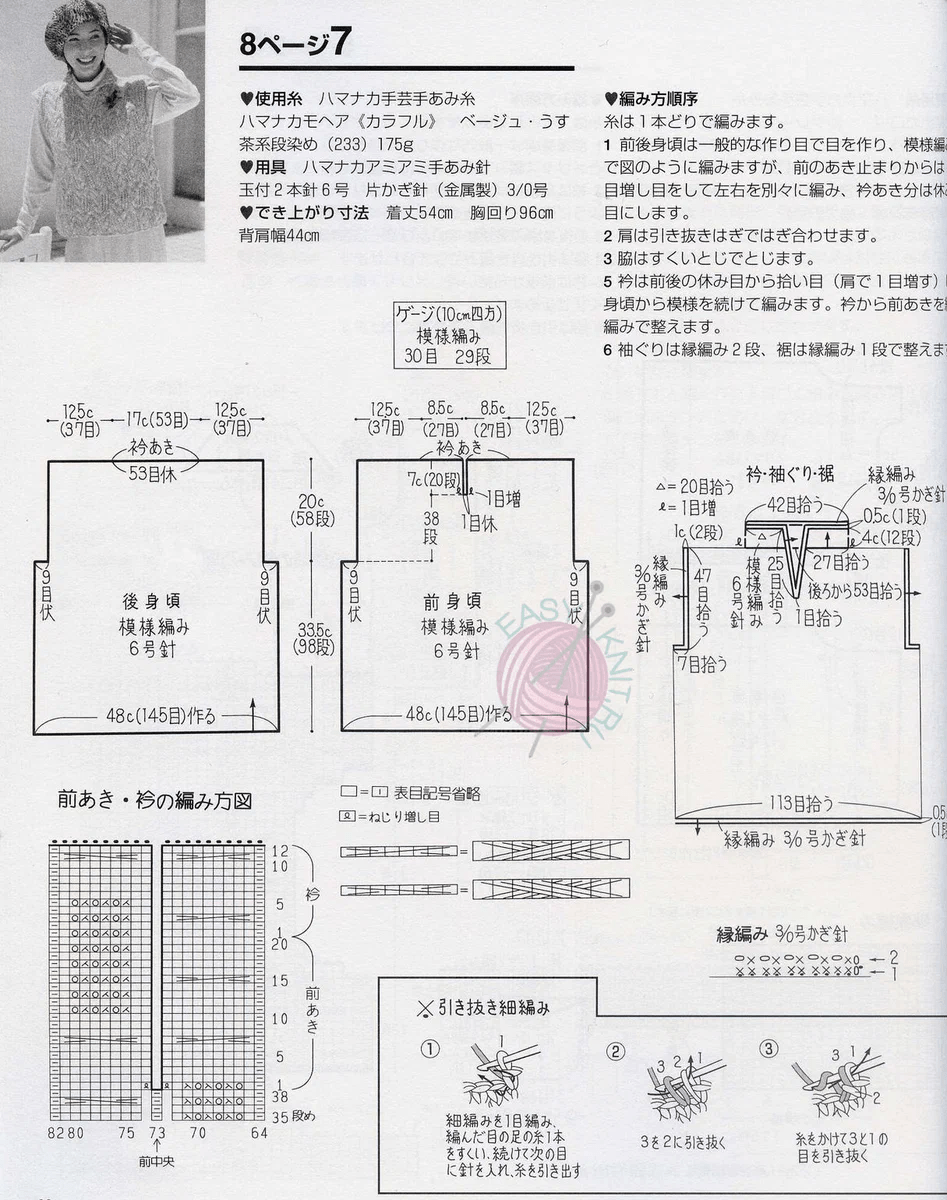 8ページ7
♥使用糸 ハマナカ手芸手あみ糸
ハマナカモヘア《カラフル》 ベージュ・うす
茶系段染め（233）175g
♥用具 ハマナカアミアミ手あみ針
玉付2本針6号 片かぎ針（金属製）3/0号
♥でき上がり寸法 着丈54cm 胸回り96cm
背肩幅44cm
♥編み方順序
糸は1本どりで編みます。
1 前後身頃は一般的な作り目で目を作り、模様編
で図のように編みますが、前のあき止まりからは
目増し目をして左右を別々に編み、衿あき分は休
目にします。
2 肩は引き抜きはぎではぎ合わせます。
3 脇はすくいとじでとじます。
5 衿は前後の休み目から拾い目（肩で1目増す）
身頃から模様を続けて編みます。衿から前あきを
編みで整えます。
6 袖ぐりは縁編み2段、裾は縁編み1段で整えま
ゲージ(10cm四方)
模様編み
30目 29段
12.5c
(37目)
17c(53目)
12.5c
(37目)
衿あき
53目休
20c
(58段)
9目伏
9目伏
後身頃
模様編み
6号針
33.5c
(98段)
48c(145目)作る
12.5c
(37目)
8.5c
(27目)
8.5c
(27目)
12.5c
(37目)
衿あき
7c(20段)
1目増
1目休
38段
9目伏
9目伏
前身頃
模様編み
6号針
48c(145目)作る
EASY KNIT.RU
衿・袖ぐり・裾
縁編み
3/0号かぎ針
△=20目拾う
ℓ=1目増
42目拾う
0.5c(1段)
4c(12段)
1c(2段)
縁編み
3/0号かぎ針
47目拾う
模様編み
6号針
25目拾う
27目拾う
後ろから53目拾う
1目拾う
7目拾う
113目拾う
縁編み 3/0号かぎ針
0.5
(1段
前あき・衿の編み方図
□=| 表目記号省略
=ねじり増し目
12
10
5
1
衿
20
15
10
5
1
前あき
38
35段め
82 80 75 73 70 64
前中央
縁編み 3/0号かぎ針
2
1
引き抜き細編み
①
細編みを1目編み、
編んだ目の足の糸1本
をすくい、続けて次の目
に針を入れ、糸を引き出す
②
3を2に引き抜く
③
糸をかけて3と1の
目を引き抜く